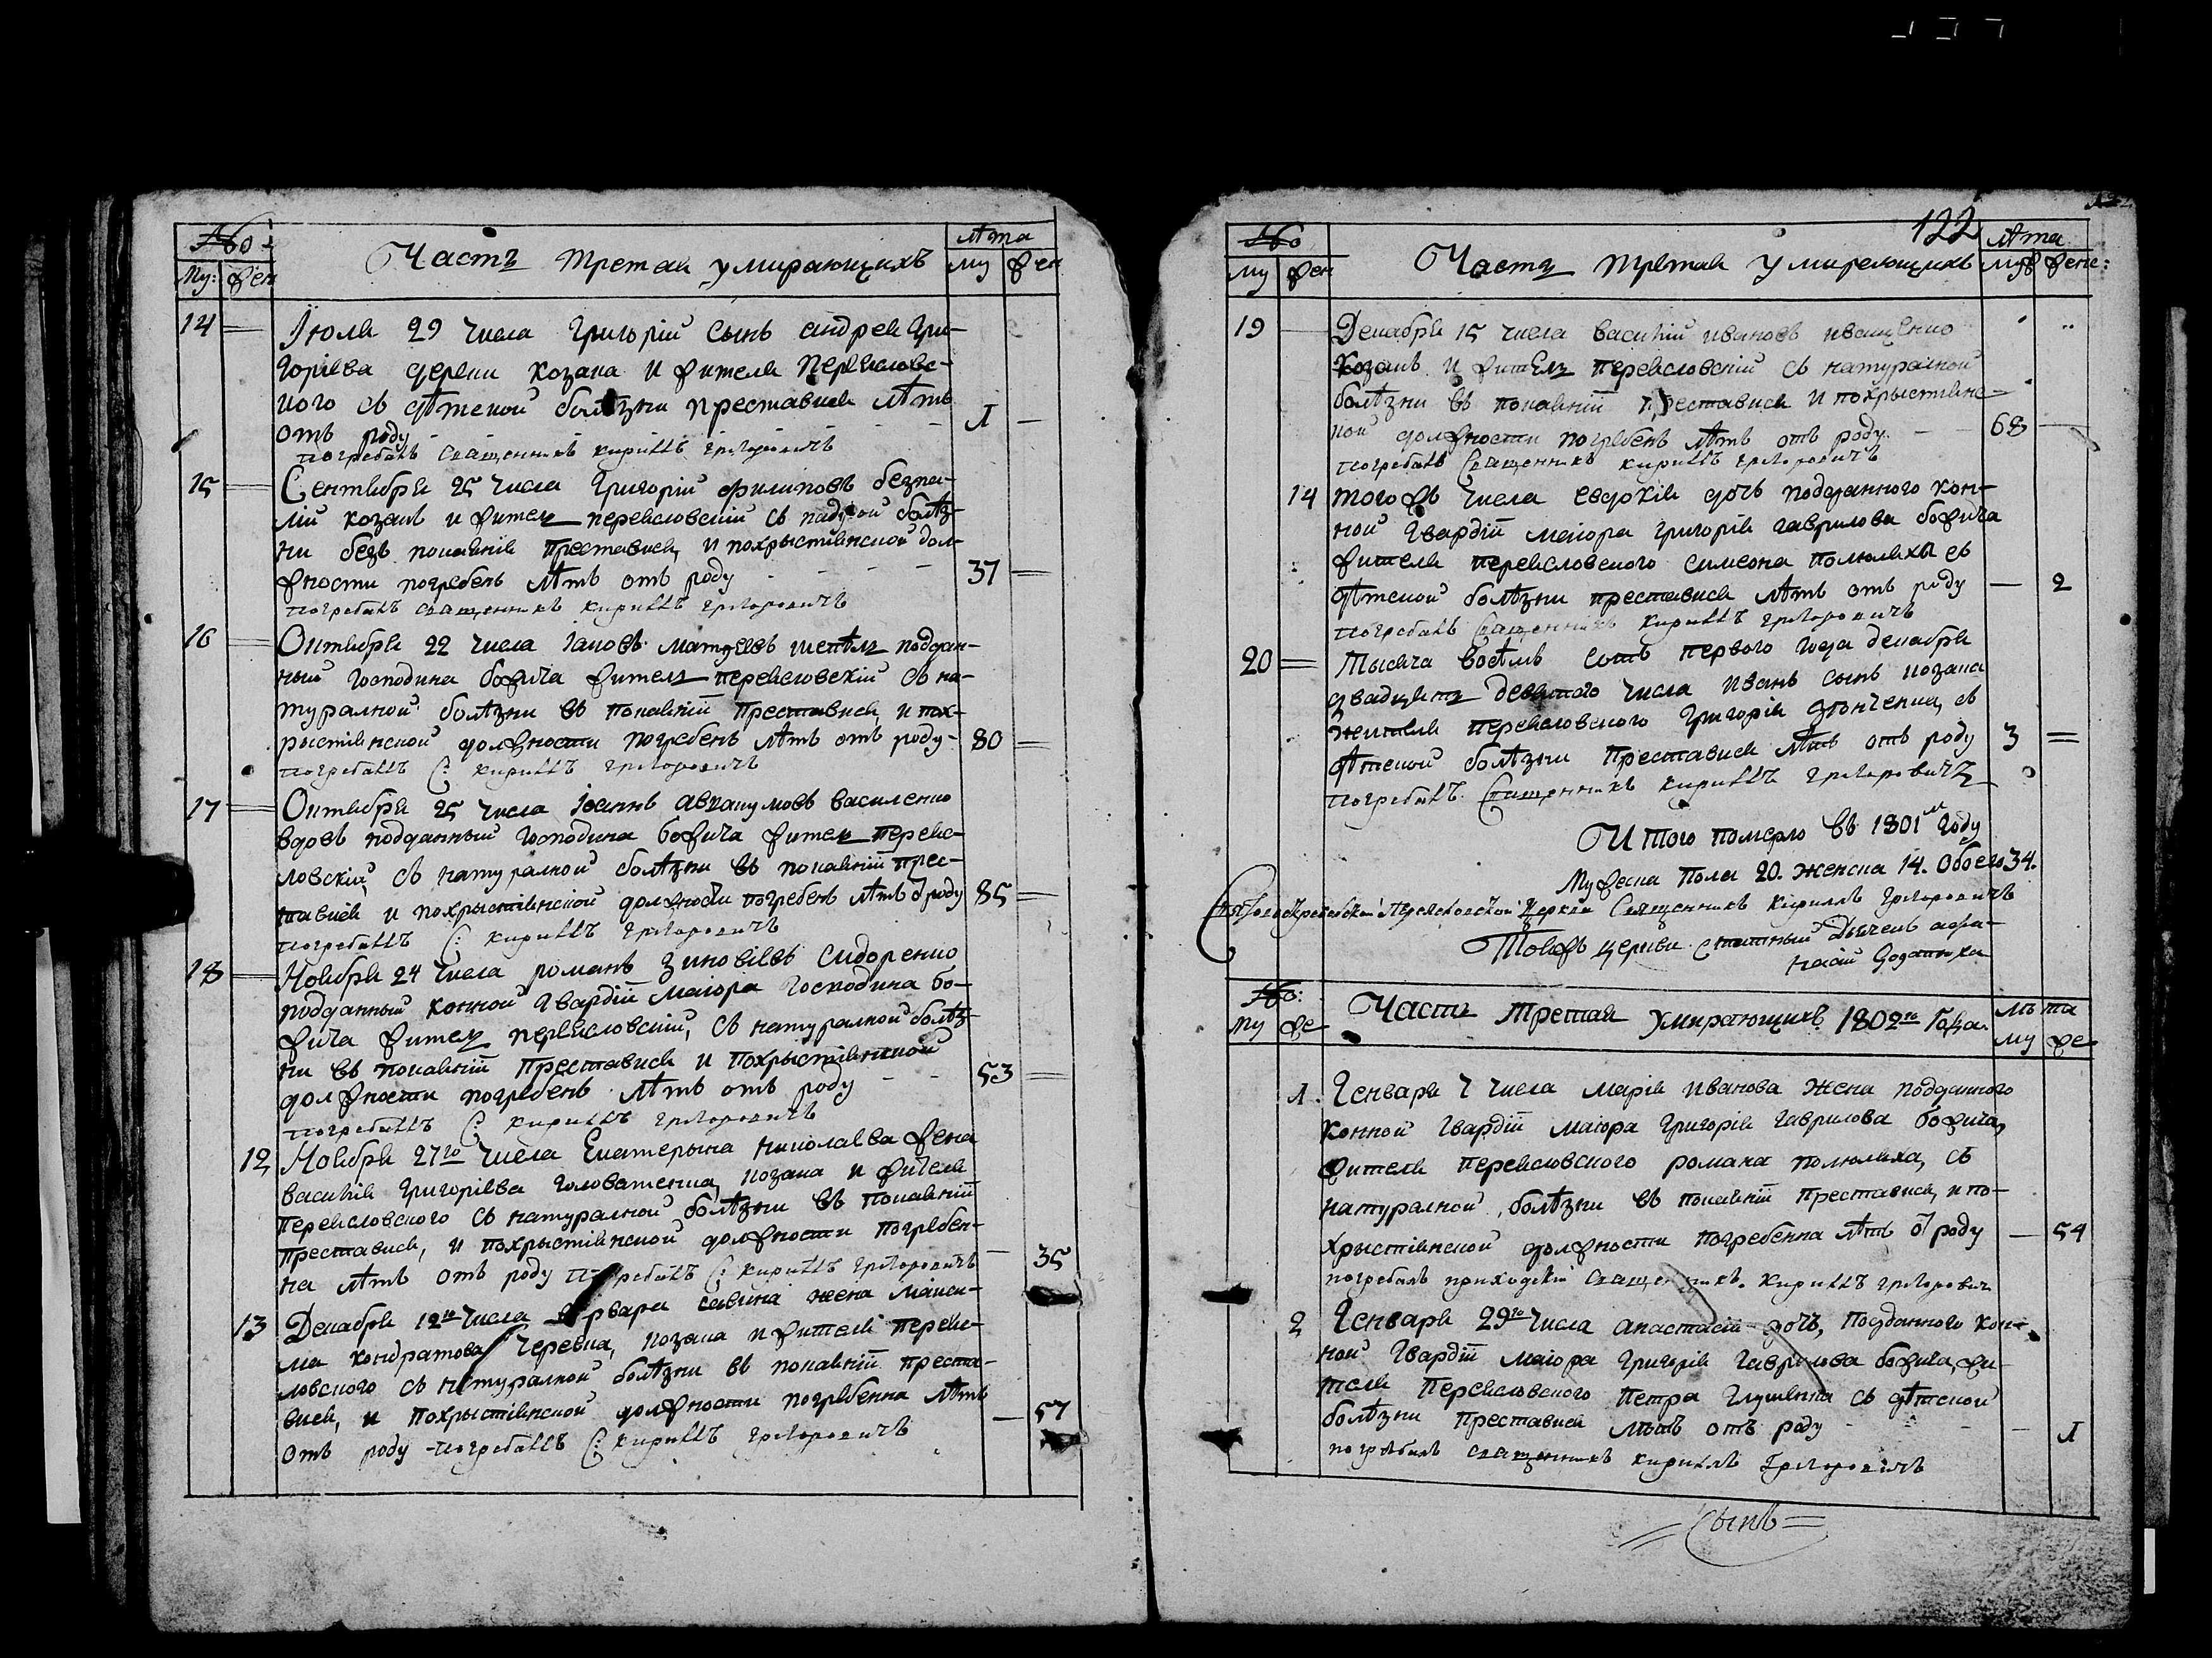 Часть третая умирающихъ
лѣта
Му: жен
му жен
14
Іюля 29 числа Григорій сынъ андрея Гри-
горіева козака и жителя переясловс-
кого съ дѣтской болѣзни преставися лѣтъ
отъ роду 1
погребалъ священникъ кириллъ григоровичъ
15
Сентября 25 числа Григорій филиповъ
козакъ и житель переясловскій съ болѣз-
ни безъ покаянія преставися, и похрыстіянской дол-
жности погребенъ лѣтъ отъ роду 37
погребалъ священникъ кириллъ григоровичъ
16
Октября 22 числа Іаковъ матѳеевъ поддан-
ный господина божича житель переясловскій съ на-
туралной болѣзни въ покаяніи преставися, и пох-
рыстіянской должности погребенъ лѣтъ отъ роду 80
погребалъ С: кириллъ григоровичъ
17
Октября 25 числа Іоаннъ авакумовъ василенко
вдовъ подданный господина божича житель переяс-
ловскій, съ натуралной болѣзни въ покаяніи прес-
тавися и похрыстіянской должности погребенъ лѣтъ ѿ роду 85
погребалъ С: кириллъ григоровичъ
18
Ноября 24 числа романъ зиновіевъ сидоренко
подданный конной гвардіи маіора господина бо-
жича житель переясловскій, съ натуралной болѣз-
ни въ покаяніи преставися и похрыстіянской
должности погребенъ лѣтъ отъ роду 53
погребалъ С: кириллъ григоровичъ
12
Ноября 27го числа Екатерына николаева жена
василія григоріева головатенка, козака и жителя
переясловского съ натуралной болѣзни въ покаяніи
преставися, и похрыстіянской должности погребен-
на лѣтъ отъ роду погребалъ С: кириллъ григоровичъ 35
13
Декабря 12 числа варвара савина жена макси-
ма кондратова козака и жителя переяс-
ловского съ натуралной болѣзни въ покаяніи преста-
вися, и похрыстіянской должности погребенна лѣтъ
отъ роду погребалъ С: кириллъ григоровичъ 57
122
Часть третая умирающихъ
лѣта
му жен
муж жене:
19
Декабря 15 числа василій ивановъ иващенко
козакъ и житель переясловскій съ натуралной
болѣзни въ покаяніи преставися и похрыстіянс-
кой должности погребенъ лѣтъ отъ роду 68
погребалъ священникъ кириллъ григоровичъ
14
того жъ числа евдокія дочь подданного кон-
ной гвардіи маіора григорія гаврилова божича
жителя переясловского симеона полюляхы съ
дѣтской болѣзни преставися лѣтъ отъ роду 2
погребалъ священникъ кириллъ григоровичъ
20
Тысяча восемъ сотъ первого года декабря
двадцять девятого числа иванъ сынъ козака
жителя переясловского григорія съ
дѣтской болѣзни преставися лѣтъ отъ роду 3
погребалъ священникъ кириллъ григоровичъ
Итого померло въ 1801м году
Мужеска пола 20. женска 14. обоего 34.
Церкви Священникъ Кириллъ Григоровичъ
Тояжъ церкви
Часть третая умирающихъ 1802го Года
лѣта
му же
му же
1
Генваря 7 числа марія иванова жена подданного
конной гвардіи маіора григорія гаврилова божича,
жителя переясловского романа полюляха, съ
натуралной болѣзни въ покаяніи преставися, и по-
хрыстіянской должности погребенна лѣтъ ѿ роду 54
погребалъ приходскій священникъ кириллъ григоровичъ
2
Генваря 29го числа анастасія дочь, подданного кон-
ной гвардіи маіора григорія гаврилова божича, жи-
теля переясловского петра съ дѣтской
болѣзни преставися лѣтъ отъ роду 1
погребалъ священникъ кириллъ григоровичъ
Сынъ